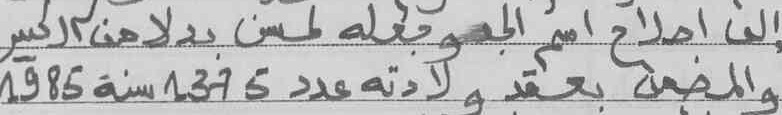 إلى اصلاح اسم الجد وجعله لحسن بدلا من الحسن
والمضمن بعقد ولادته عدد 1375 سنة 1985